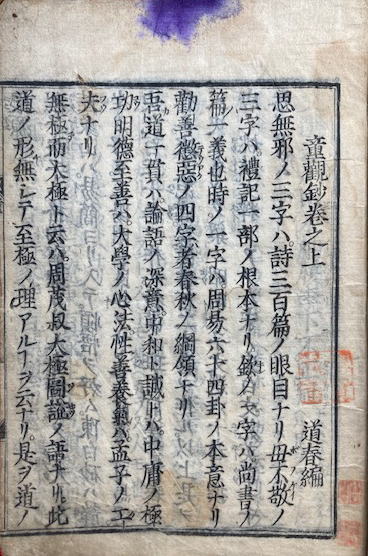 童觀鈔卷之上
道春編
思無邪ノ三字ハ詩三百篇ノ眼目ナリ毋不敬ノ
三字ハ禮記一部ノ根本ナリ欽ノ一字ハ尚書ノ
篇一義也時ノ一字ハ周易六十四卦ノ本意ナリ
勸善懲惡ノ四字者春秋ノ綱領ナリ
吾道一貫ハ論語ノ深意中和ト誠トハ中庸ノ極
功明德至善ハ大學ノ心法性善養氣ハ孟子ノ工
夫ナリ
無極而太極ト云ハ周茂叔太極圖說ノ語ナリ此
道ノ形無シテ至極ノ理アルヿヲ云ナリ是ヲ道ノ